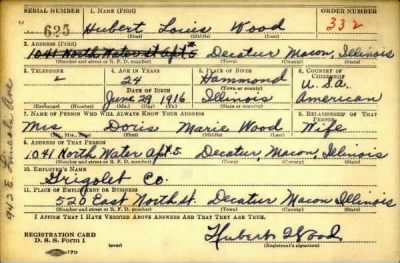 SERIAL NUMBER 1. NAME (Print) ORDER NUMBER
625 Hubert Louis Wood 332
(First) (Middle) (Last)
2. ADDRESS (Print)
1041 North Water st apt 5 Decatur Macon, Illinois
(Number and street or R. F. D. number) (Town) (County) (State)
3. TELEPHONE 4. AGE IN YEARS 5. PLACE OF BIRTH 6. COUNTRY OF CITIZENSHIP
24 Hammond
DATE OF BIRTH (Town or county) U.S.A.
June 29 1916 Illinois American
(Exchange) (Number) (Mo.) (Day) (Yr.) (State or country)
7. NAME OF PERSON WHO WILL ALWAYS KNOW YOUR ADDRESS 8. RELATIONSHIP OF THAT PERSON
Mrs Doris Marie Wood Wife
(Mr., Mrs., Miss) (First) (Middle) (Last)
9. ADDRESS OF THAT PERSON
1041 North Water apt 5 Decatur, Macon, Illinois
(Number and street or R. F. D. number) (Town) (County) (State)
10. EMPLOYER'S NAME
Drigolet Co.
11. PLACE OF EMPLOYMENT OR BUSINESS
520 East North st. Decatur Macon Illinois
(Number and street or R. F. D. number) (Town) (County) (State)
I AFFIRM THAT I HAVE VERIFIED ABOVE ANSWERS AND THAT THEY ARE TRUE.
REGISTRATION CARD
D. S. S. Form 1 Hubert Wood
(Registrant's signature)